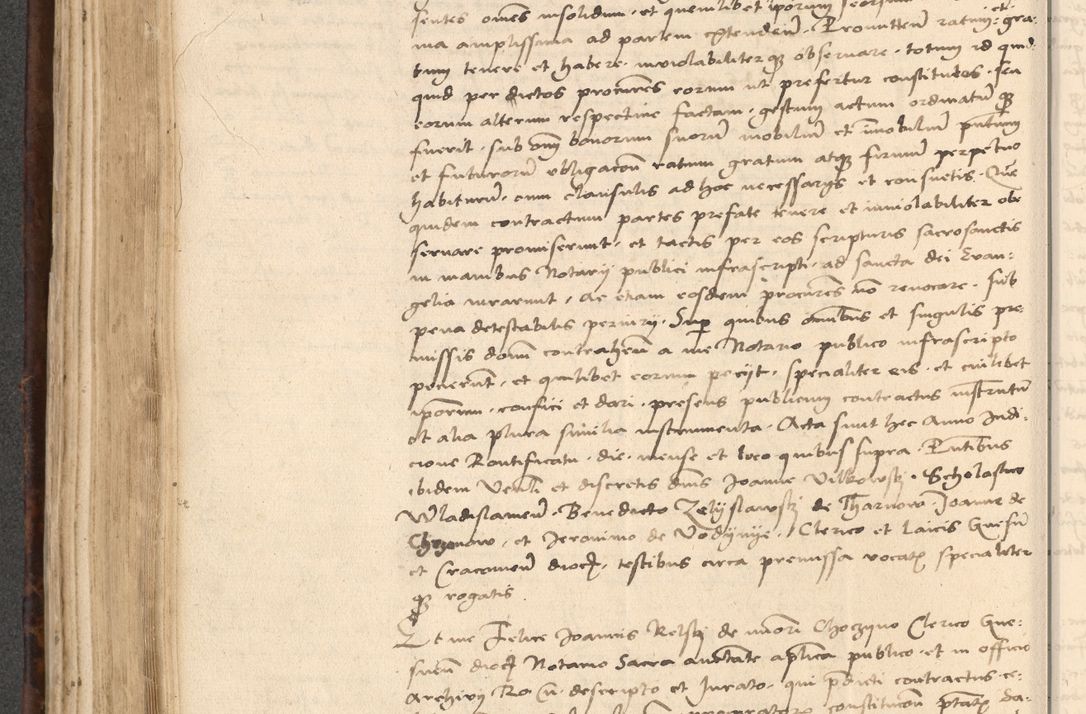 sentes omes insolidum, et quemlibet iporum seorsim
ma amplissima ad partem extenden. Promitten ratum, et gra-
tum tenere et habere, inviolabiliterqȝ observare, totum id quid-
quid per dictos procures eorum ut prefertur constitutos, seu
eorum alterum respective factum, gestum actum ordinatūqȝ
fuerit. sub omi bonorum suorū mobiliū et imobiliū pntium
et futurorū obligacoñ ratum gratum atqȝ firmū perpetuo
habiturū, cum clausulis ad hoc necessarijs et consuetis. Quē
quidem contractum partes prefate tenere et inviolabiliter ob-
servare promiserunt, et tactis per eos scripturis sacrosanctis
in manibus Notarij publici infrascripti, ad sancta dei Evan-
gelia iurarunt, ac etiam eosdem procures nō revocare. sub
pena detestabilis periurij. Sup quibus omibus et singulis pre-
missis domi contrahen a me Notario publico infrascripto
petierunt, et quilibet eorum petijt, specialiter eis, et cuilibet
iporum, confici et dari, presens publicum contractus instrutū
et alia plura similia instrumenta. Acta sunt hec Anno Indi-
cione Pontificatu, die, mense et loco quibus supra. Pntibus
ibidem Venli et discretis dnis Joanne Vilkowskj, Scholastico
Wladislavien, Benedicto Zelyslawskj de Tharnow, Joanne de
Chrzanow, et Jeronimo de Vodzynye, Clerico et Laicis Gnesn
et Cracovien dioc, testibus circa premissa vocatꝭ specialiter
qȝ rogatis.
Et me Felice Joannis Relskj de miori Choczyno Clerico Gne-
snen dioc Notario Sacra auctate aplica publico, et in officio
Archivij Ro. Cu. descripto et Jurato. qui pdicti contractus, ce-
constitucoñ